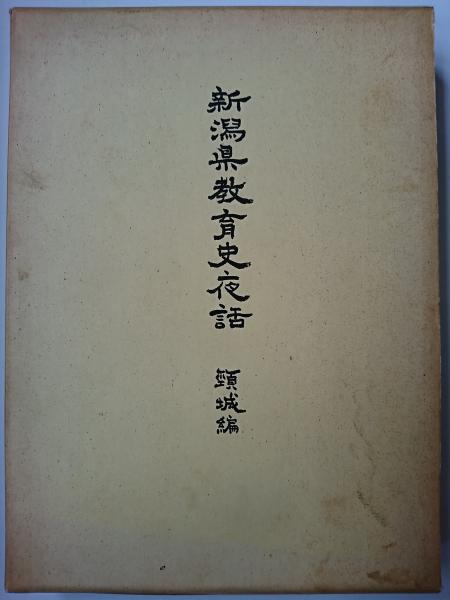 新潟県教育史夜話
頸城編